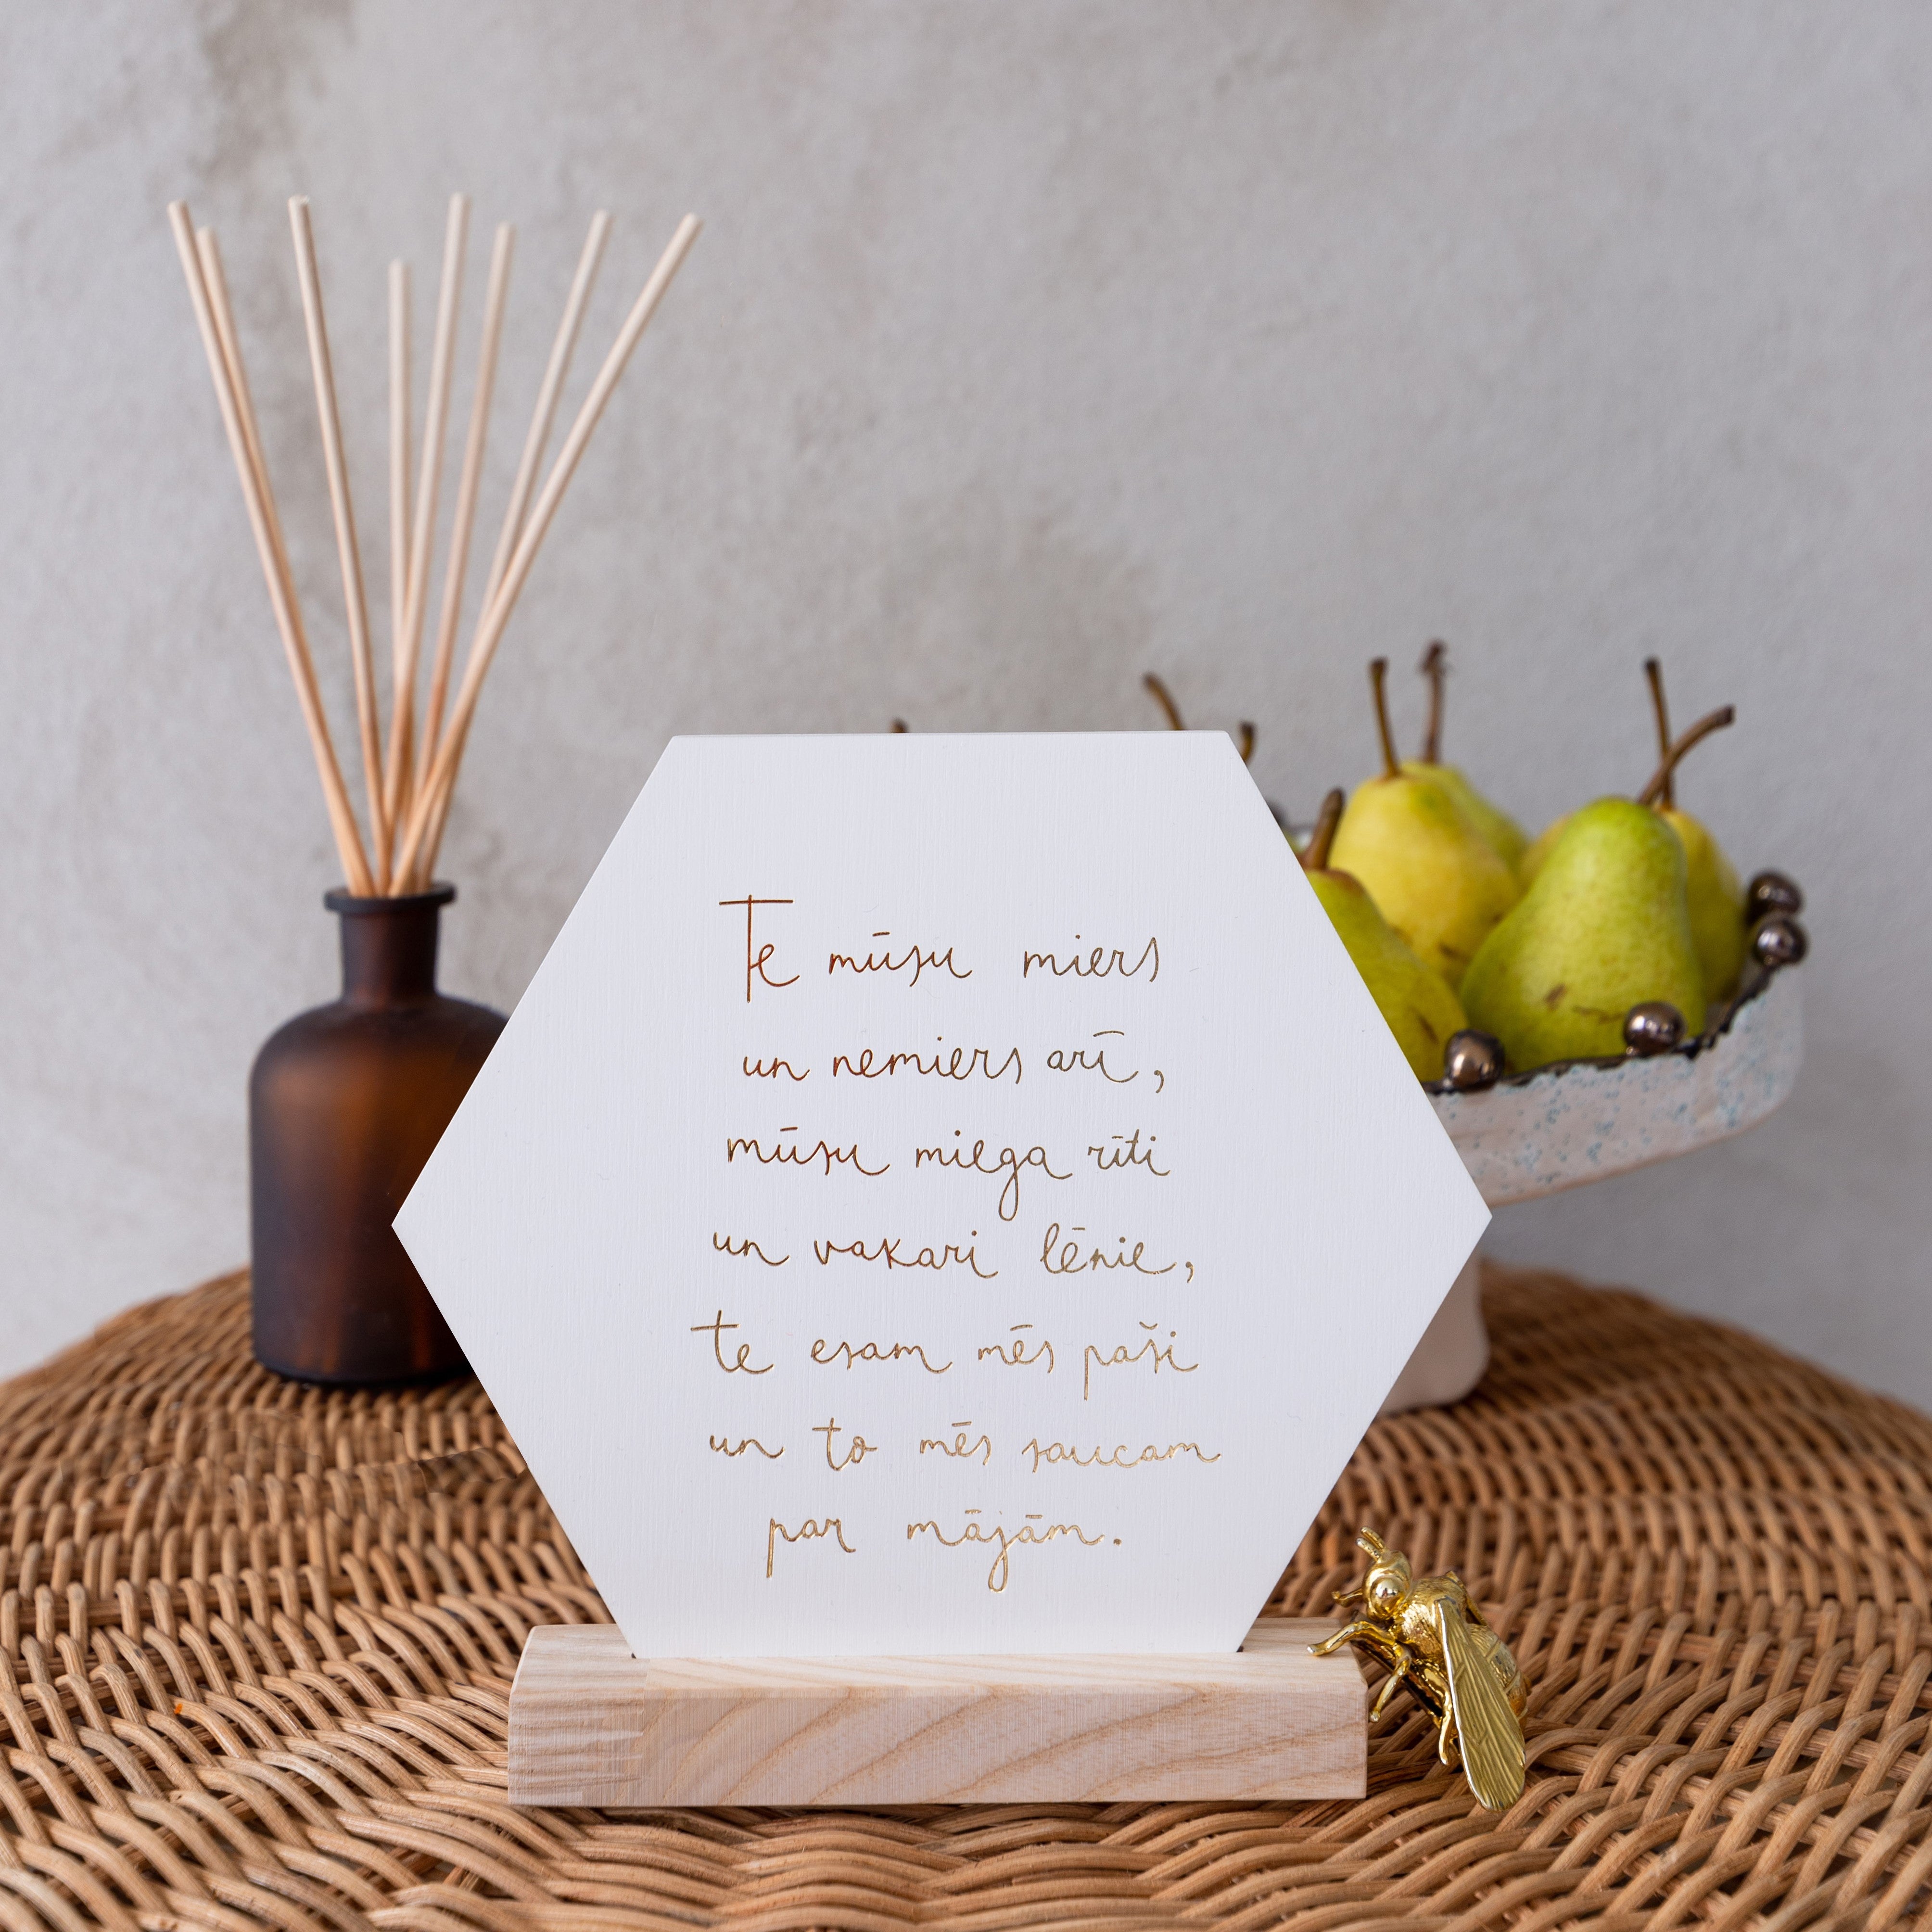 Te mūsu miers
un nemiers arī,
mūsu miega rīti
un vakari lēnie,
te esam mēs paši
un to mēs saucam
par mājām.